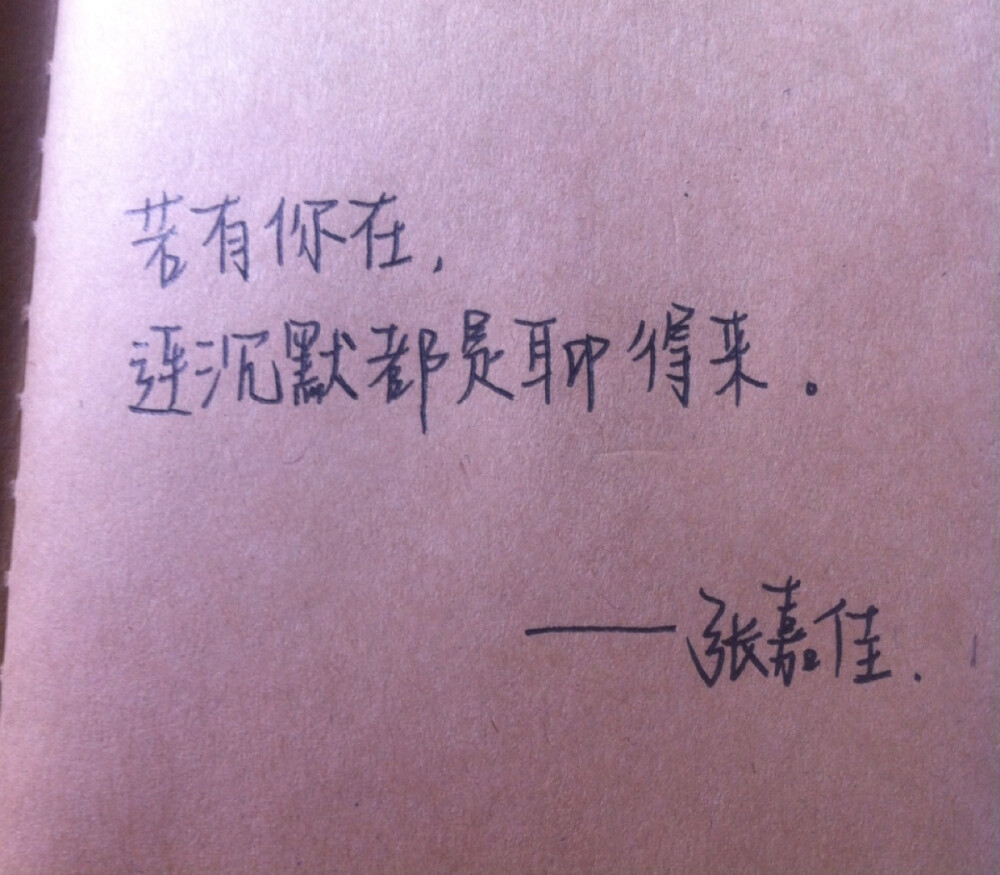 若有你在,
连沉默都是聊得来。
——张嘉佳.